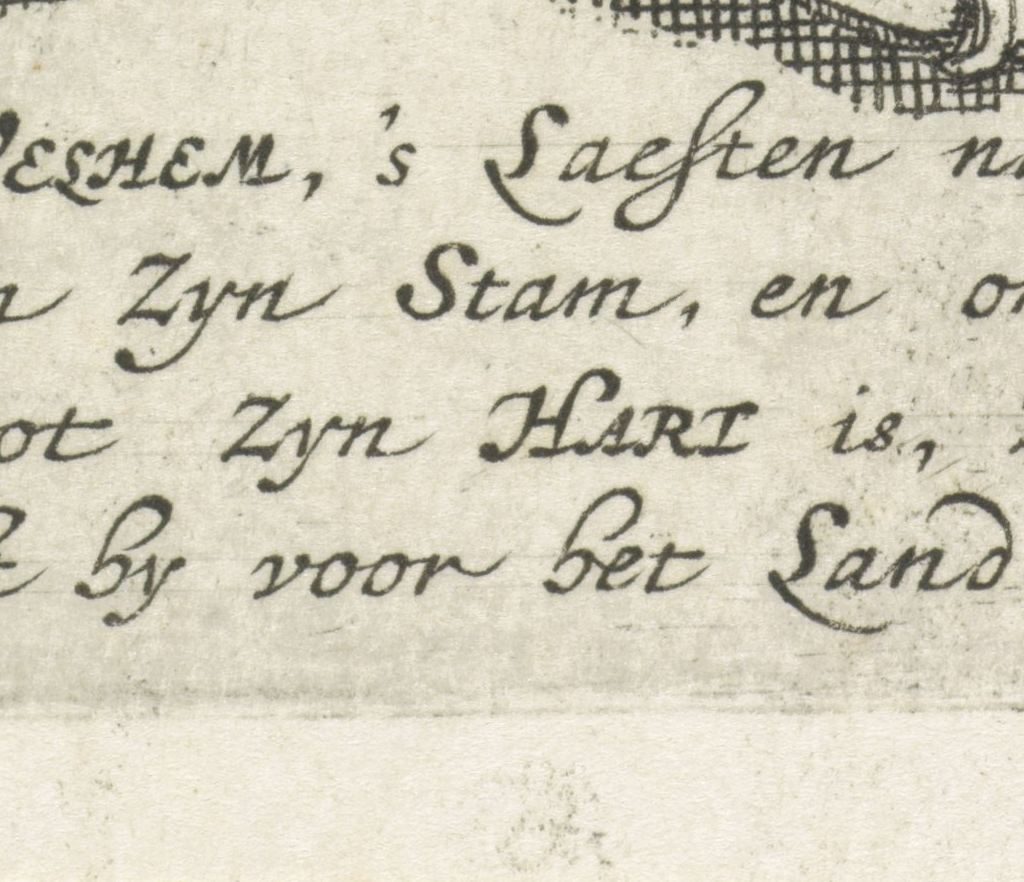 WELHEM, 's Laeſten
Zyn Stam, en
Zyn HART is,
hy voor het Land